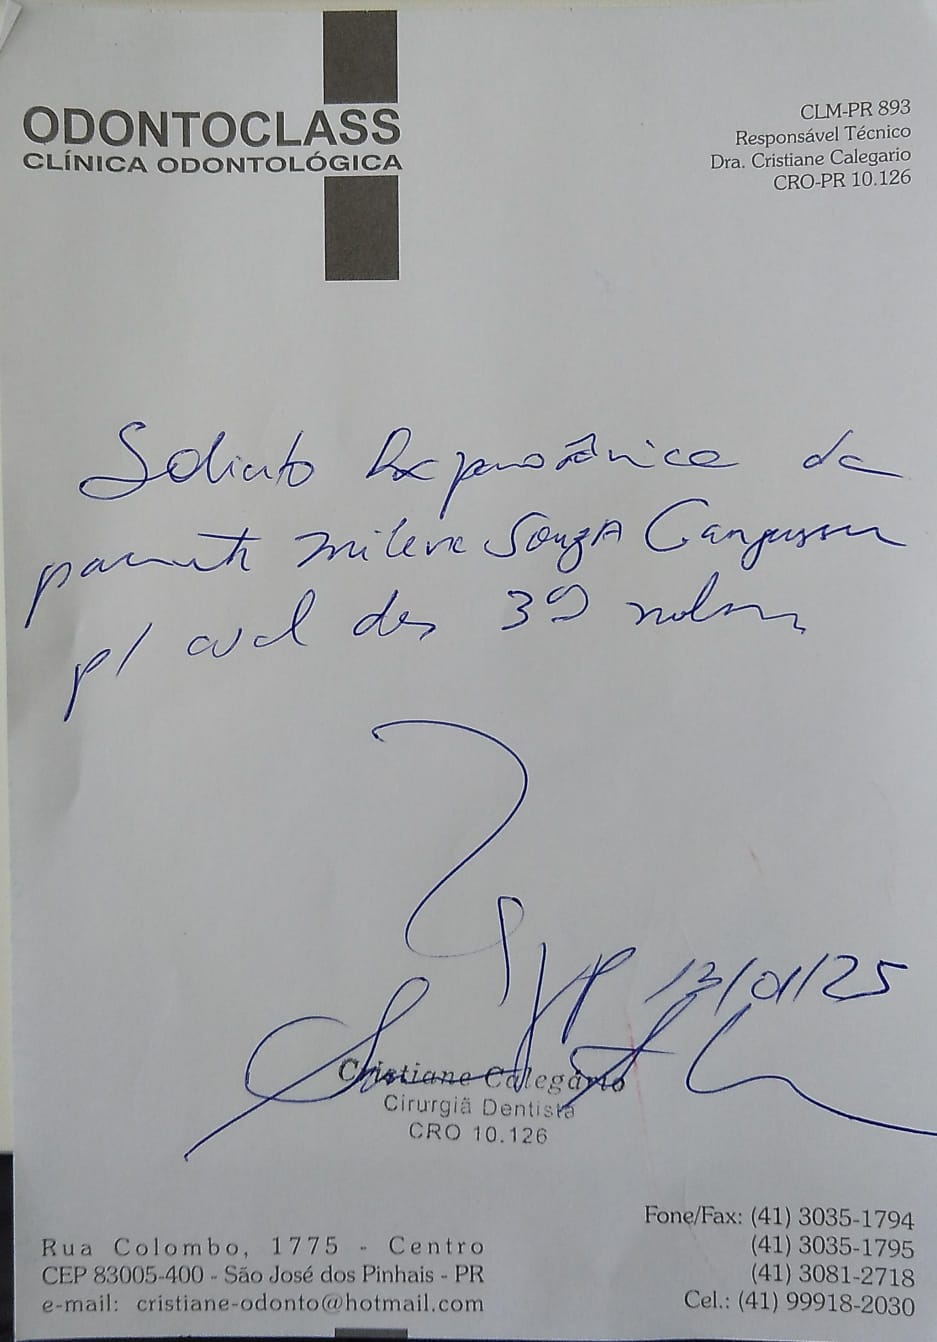 ODONTOCLASS
CLÍNICA ODONTOLÓGICA
CLM-PR 893
Responsável Técnico
Dra. Cristiane Calegario
CRO-PR 10.126
Solicito Rx panorâmica da
paciente Milena Souza
p/ aval dos 3ºs molares
13/01/25
Cristiane Calegário
Cirurgiã Dentista
CRO 10.126
Rua Colombo, 1775 - Centro
CEP 83005-400 - São José dos Pinhais - PR
e-mail: cristiane-odonto@hotmail.com
Fone/Fax: (41) 3035-1794
(41) 3035-1795
(41) 3081-2718
Cel.: (41) 99918-2030